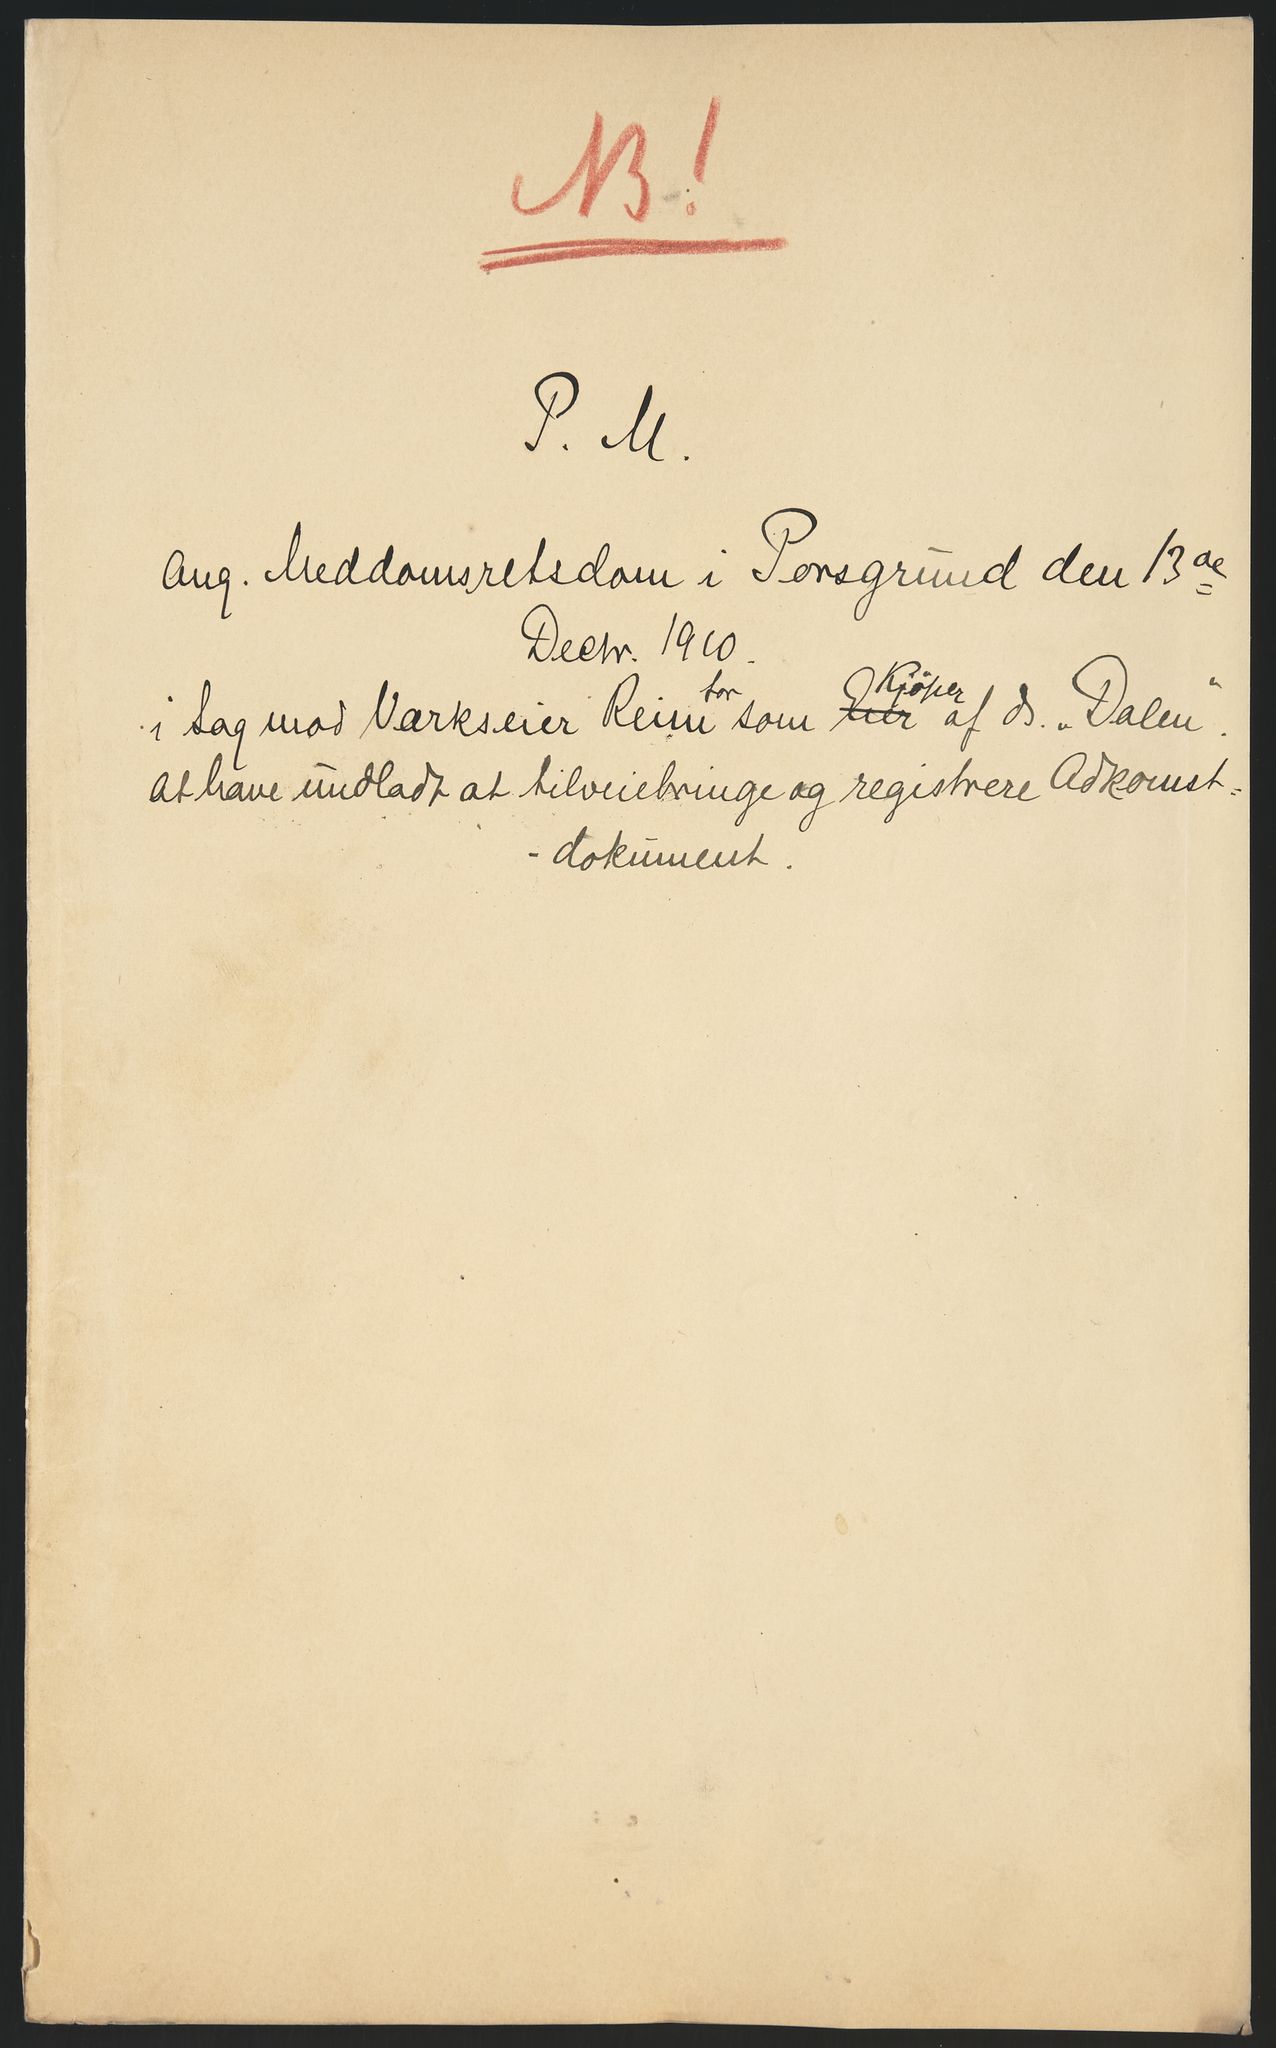 NB!
P. M.
Ang. Meddomsretsdom i Porsgrund den 13de
Decbr. 1910.
i Sag mod Værkseier Reim for som Eier Kjöper af ds. „Dalen“.
at have undladt at tilveiebringe og registrere Adkomst-
-dokument.